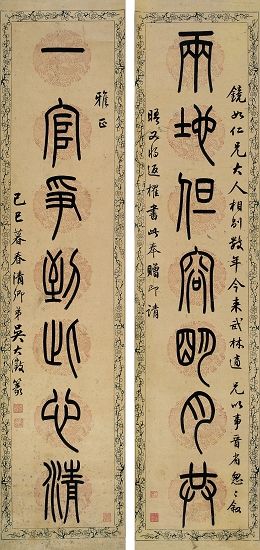 鏡如仁兄大人相別數年今來武林適兄以事晉省怱怱敘
兩地但容明月共
晤又將返櫂書此奉贈即請
雅正
一官爭到此心清
己巳暮春清卿弟吳大澂篆